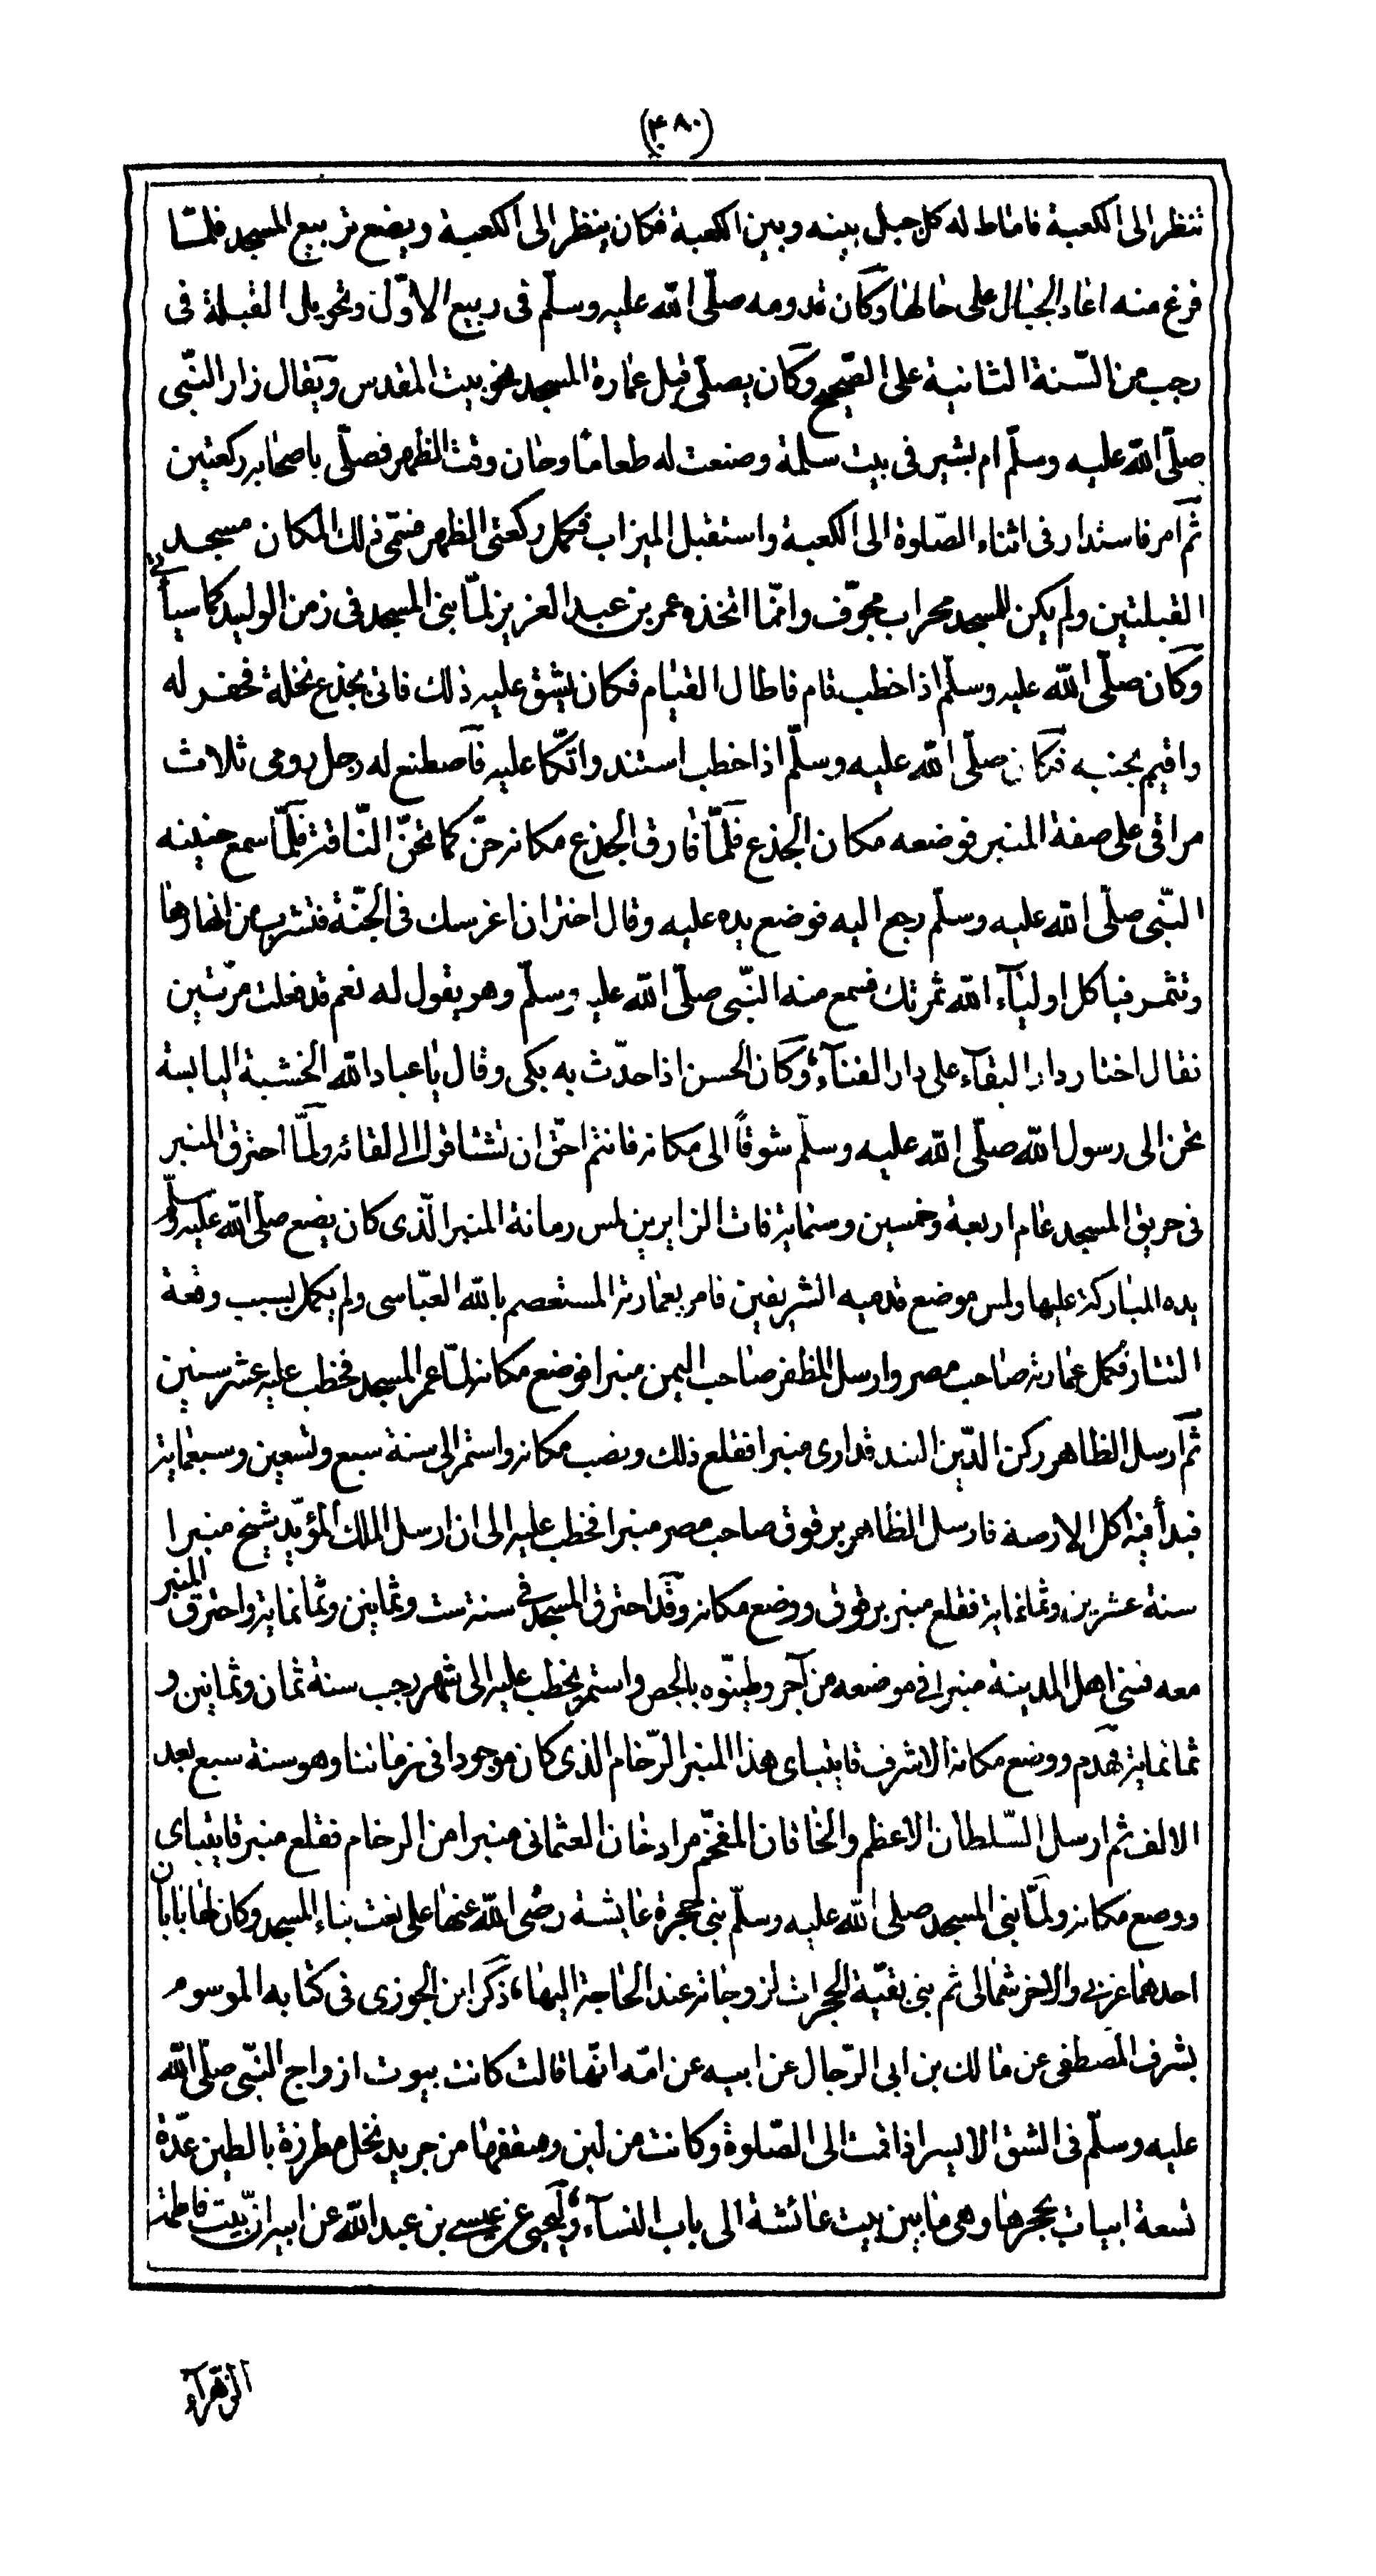 (٣٨٠)
تنظر الى الكعبة فاماط له كل جبل بينه وبين الكعبة فكان ينظر الى الكعبة ويضع تربيع المسجد فلمّا
فرغ منه اعاد الجبال على حالها وكان قدومه صلّى الله عليه وسلّم فى ربيع الاوّل وتحويل القبلة فى
رجب من السّنة الثانية على الصّحيح وكان يصلّى قبل عمارة المسجد نحو بيت المقدس ويقال زار النّبى
صلّى الله عليه وسلّم ام بشير فى بيت سلمة وصنعت له طعاما وحان وقت الظهر فصلّى باصحابه ركعتين
ثم امر فاستدار فى اثناء الصّلوة الى الكعبة واستقبل الميزاب فكمل ركعتى الظهر فسمّى ذلك المكان مسجد
القبلتين ولم يكن للمسجد محراب مجوّف وانمّا اتخذه عمر بن عبد العزيز لمّا بنى المسجد فى زمن الوليد كما سيأتى
وكان صلّى الله عليه وسلّم اذا خطب قام فاطال القيام فكان يشق عليه ذلك فاتى بجذع نخلة فحفر له
واقيم بجنبه فكان صلّى الله عليه وسلّم اذا خطب استند واتّكأ عليه فاصطنع له رجل رومى ثلاث
مراقى على صفة المنبر فوضعه مكان الجذع فلمّا فارق الجذع مكانه حنّ كما تحنّ النّاقة فلمّا سمع حنينه
النّبى صلّى الله عليه وسلّم رجع اليه فوضع يده عليه وقال اختر ان اغرسك فى الجنّة فتشرب من انهارها
وتثمر فياكل اولياء الله ثمرتك فسمع منه النّبى صلّى الله عليه وسلّم وهو يقول له نعم قد فعلت مرّتين
فقال اختار دار البقاء على دار الفناء وكان الحسن اذا حدّث به بكى وقال يا عباد الله الخشبة اليابسة
تحن الى رسول الله صلّى الله عليه وسلّم شوقاً الى مكانه فانتم احقّ ان تشتاقوا الى لقائه ولمّا احترق المنبر
فى حريق المسجد عام اربعة وخمسين وستماية فات الزايرين لمس رمانة المنبر الّذى كان يضع صلّى الله عليه وسلّم
يده المباركة عليها ولمس موضع قدميه الشريفين فامر بعمارته المستعصم بالله العبّاسى ولم يكمل بسبب وقعة
التتار فكمل عمارته صاحب مصر وارسل المظفر صاحب اليمن منبرا فوضع مكانه لمّا عمر المسجد فخطب عليه عشر سنين
ثم ارسل الظاهر ركن الدّين البندقدارى منبرا فقلع ذلك ونصب مكانه واستمر الى سنة سبع وتسعين وسبعماية
فبدأ فيه اكل الارضة فارسل الظاهر برقوق صاحب مصر منبرا فخطب عليه الى ان ارسل الملك المؤيّد شيخ منبرا
سنة عشرين وثمانماية فقلع منبر برقوق ووضع مكانه وقد احترق المسجد فى سنة ست وثمانين وثمانماية واحترق المنبر
معه فبنى اهل المدينة منبرا فى موضعه من آجر وطينّوه بالجص واستمر يخطب عليه الى شهر رجب سنة ثمان وثمانين و
ثمانماية فهدم ووضع مكانه الاشرف قايتباى هذا المنبر الرّخام الذى كان موجودا فى زماننا وهو سنة سبع بعد
الالف ثم ارسل السّلطان الاعظم والخاقان المفخّم مراد خان العثمانى منبرا من الرخام فقلع منبر قايتباى
ووضع مكانه ولمّا بنى المسجد صلى الله عليه وسلّم بنى حجرة عايشة رضى الله عنها على نعت بناء المسجد وكان لها بابان
احدهما غربى والاخر شمالى ثم بنى بقيّة الحجرات لزوجاته عند الحاجة اليها، ذكر ابن الجوزى فى كتابه الموسوم
بشرف المصطفى عن مالك بن ابى الرّجال عن ابيه عن امّه انّها قالت كانت بيوت ازواج النّبى صلّى الله
عليه وسلّم فى الشق الايسر اذا قمت الى الصّلوة وكانت من لبن وسقفها من جريد نخل مطرزة بالطين عدّة
تسعة ابيات بحجرها وهى ما بين بيت عائشة الى باب النساء وليحيى عن عيسى بن عبد الله عن ابيه ان بّيت فاطمة
الزهراء